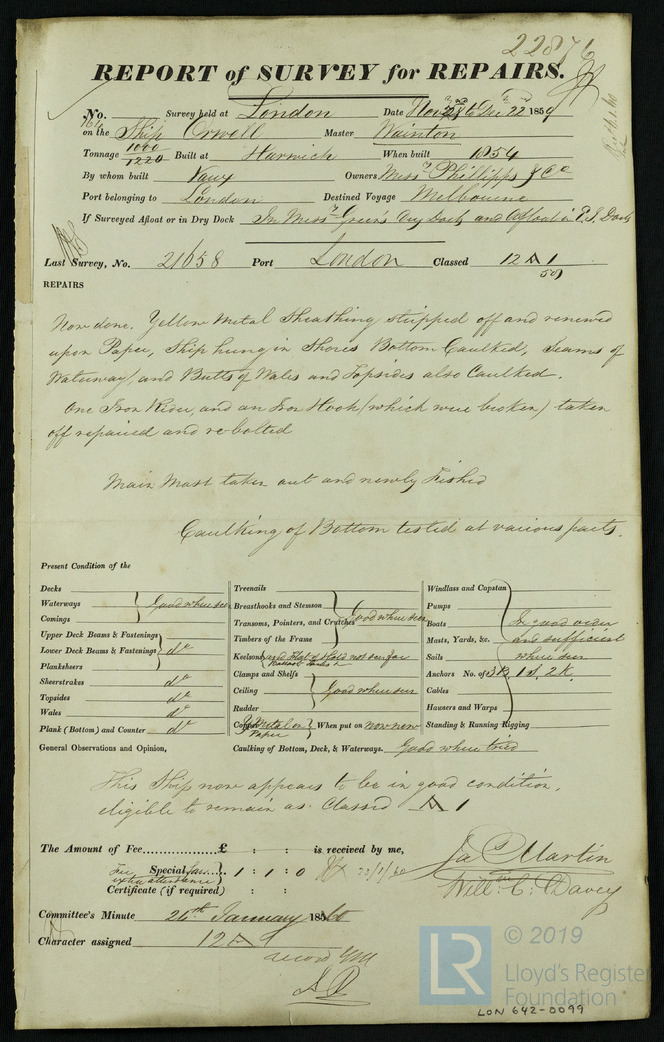 22876
REPORT of SURVEY for REPAIRS.
No. Survey held at London Date Nov 23rd to Dec 22nd 1859
on the Ship Orwell Master Wainton
Tonnage 1000/1220 Built at Harwich When built 1854
By whom built Vaux Owners Messrs Phillipps & Co
Port belonging to London Destined Voyage Melbourne
If Surveyed Afloat or in Dry Dock In Messrs Green's Dry Dock and Afloat in E. I. Docks
Last Survey, No. 21658 Port London Classed 12 A 1
59
REPAIRS
Now done. Yellow Metal Sheathing stripped off and renewed
upon Paper, Ship hung in Shores Bottom Caulked, Seams of
Waterways, and Butts of Wales and Topsides also Caulked.
One Iron Rider, and an Iron Hook (which were broken) taken
off repaired and re-bolted
Main Mast taken out and newly Fished
Caulking of Bottom tested at various parts.
Present Condition of the
Decks
Waterways Good where seen
Comings
Upper Deck Beams & Fastenings
Lower Deck Beams & Fastenings do
Planksheers
Sheerstrakes do
Topsides do
Wales do
Plank (Bottom) and Counter do
Treenails
Breasthooks and Stemson
Transoms, Pointers, and Crutches Good where seen
Timbers of the Frame
Keelsons and Flat of Hold not seen for
Clamps and Shelfs
Ceiling Good where seen
Rudder
Copper Y Metal on Paper When put on now new
Windlass and Capstan
Pumps
Boats In good order
Masts, Yards, &c. and sufficient
Sails where seen
Anchors No. of 3B, 1S, 2K.
Cables
Hausers and Warps
Standing & Running Rigging
General Observations and Opinion, Caulking of Bottom, Deck, & Waterways. Good where tried
This Ship now appears to be in good condition,
eligible to remain as Classed A 1
The Amount of Fee £ : : is received by me,
Special 1 : 1 : 0
Fee extra attendance
Certificate (if required) : :
Jas Martin
Willm C. Davey
Committee's Minute 26th January 1860
Character assigned 12 A 1
© 2019
LR
Lloyd's Register
Foundation
LON 642-0099